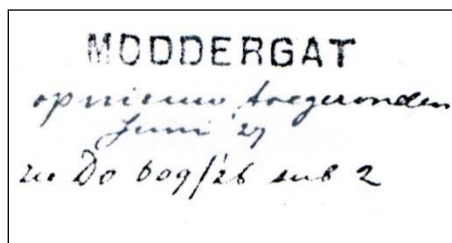 MODDERGAT
opnieuw toegezonden
Juni '27
zie Do 609/'26 sub 2